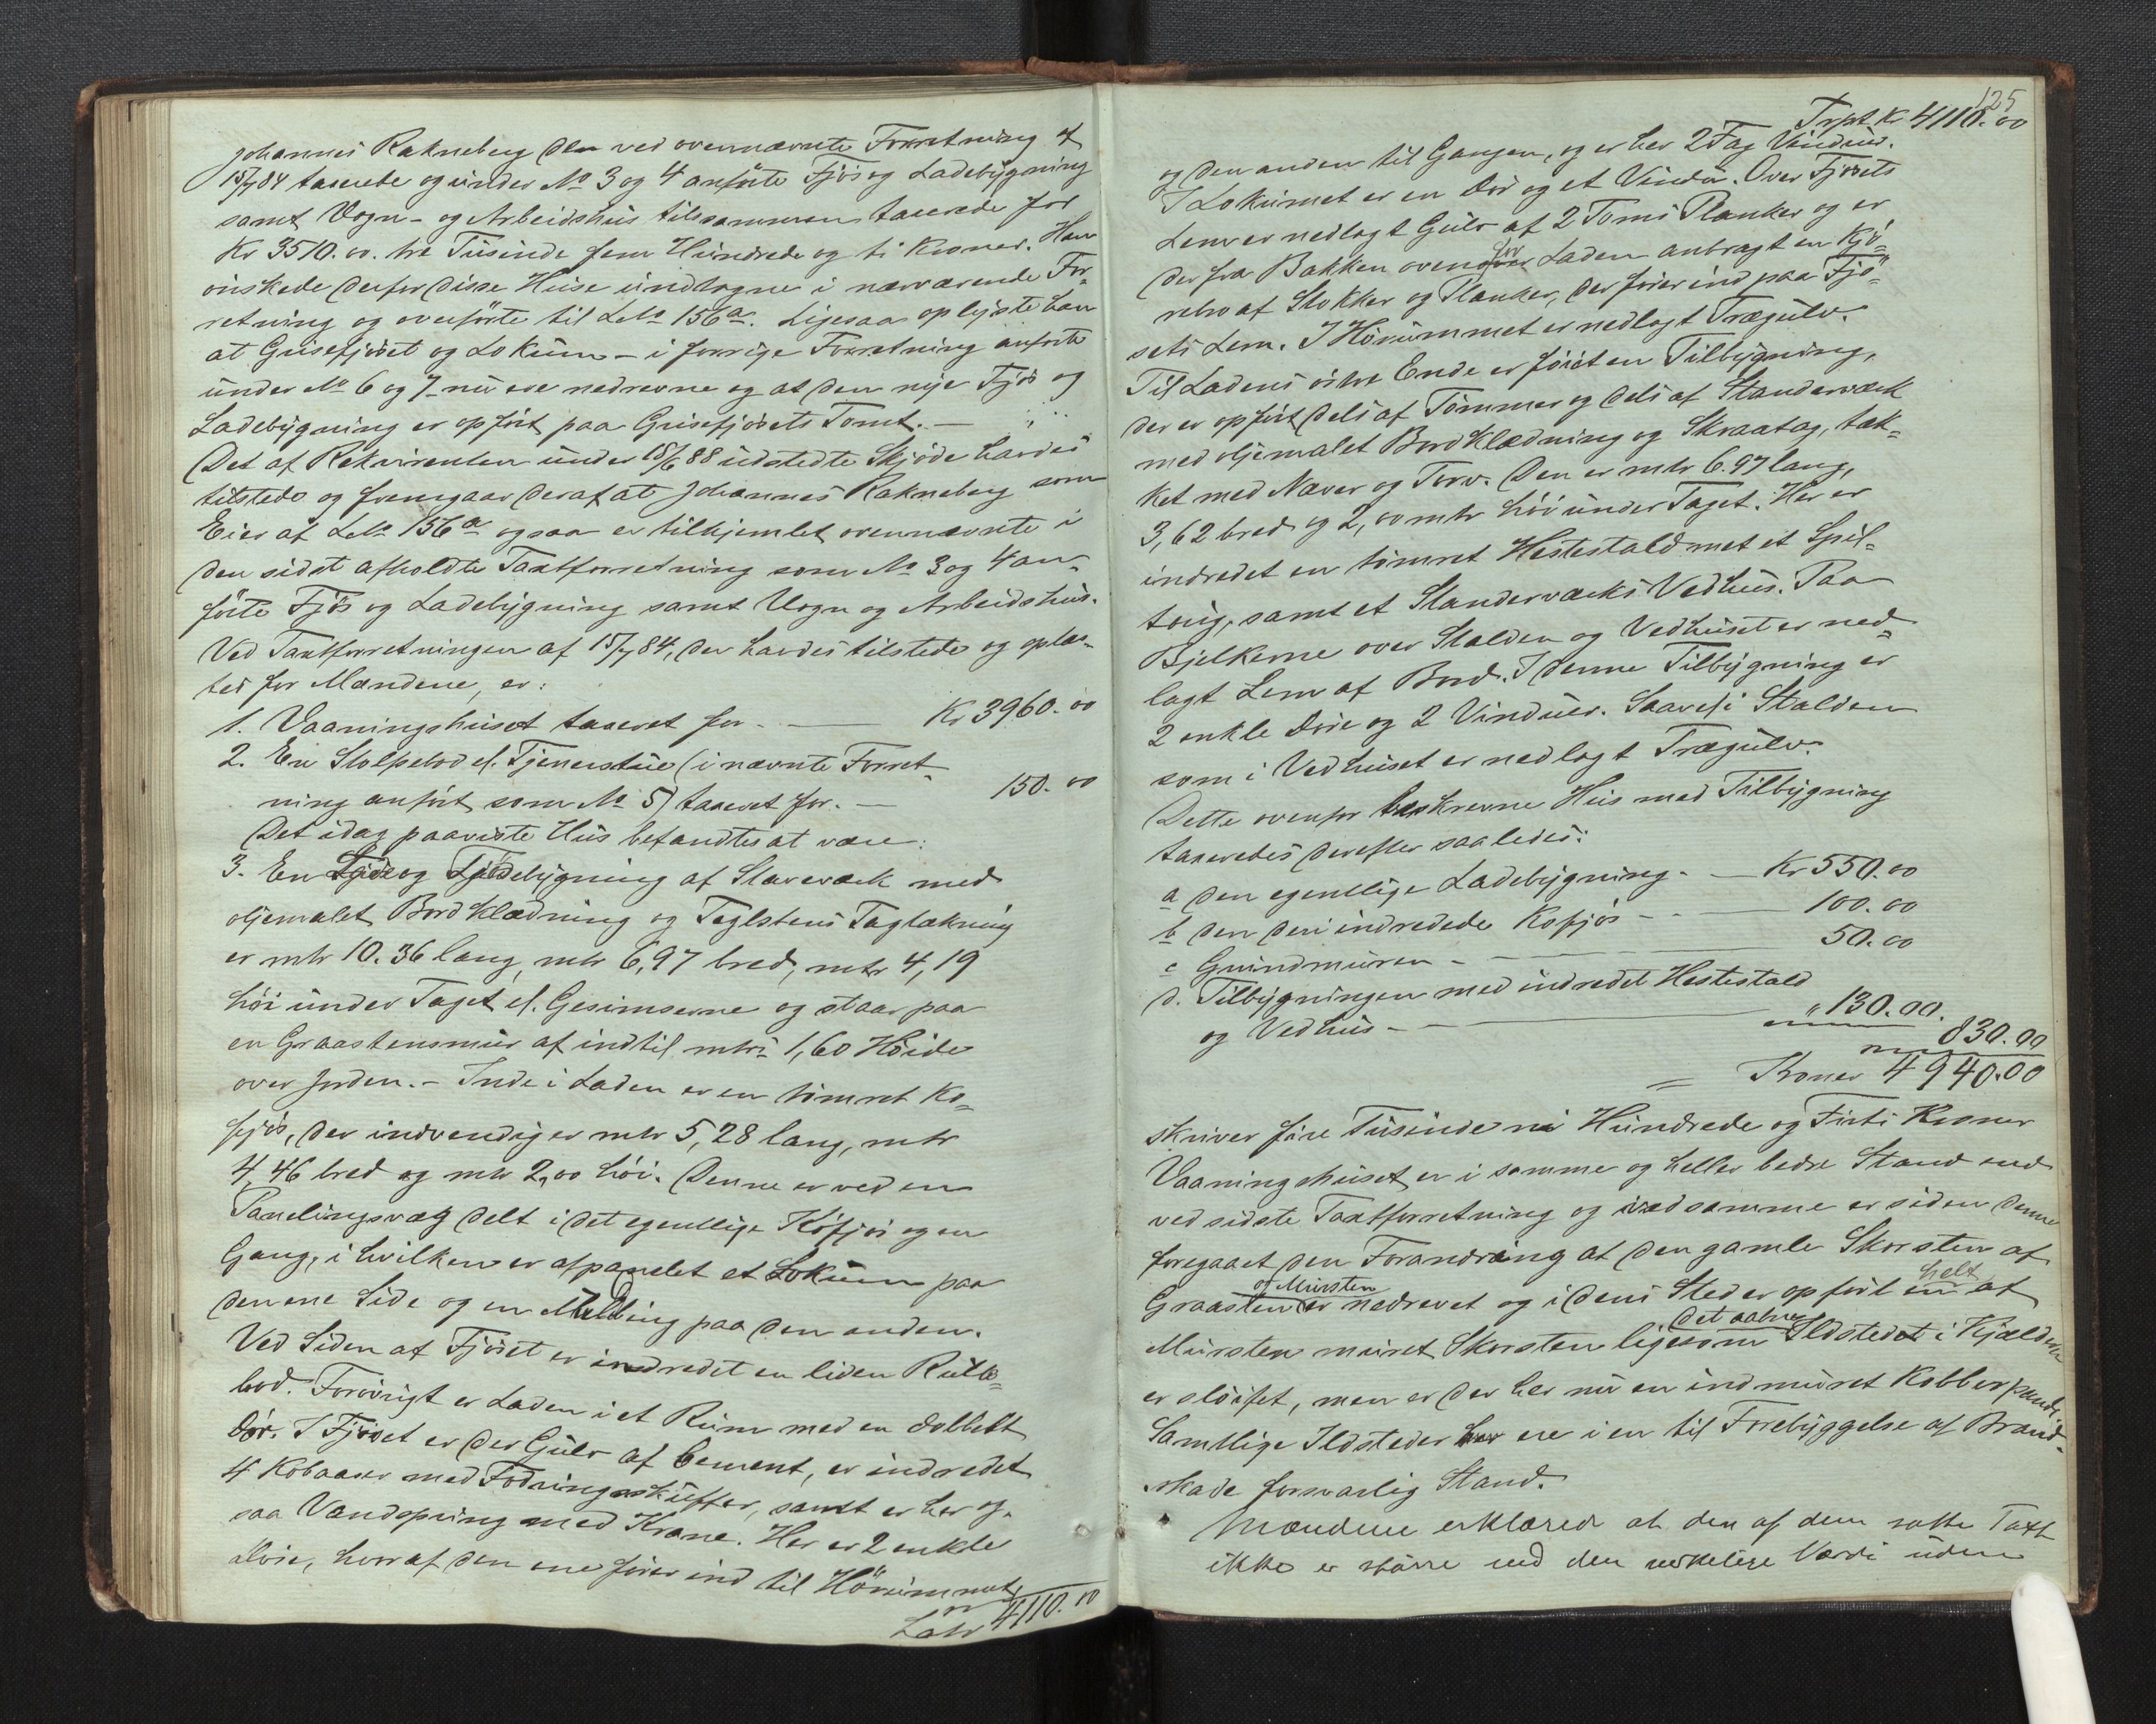 Johannes Rakneberg den ved ovennævnte Forretning af
15/7 84 taxerede og under No 3 og 4 anførte Fjøs og Ladebygning
samt Vogn- og Arbeidshus tilsammen taxerede for
Kr 3510.00. tre Tusinde fem Hundrede og ti Kroner. Han
ønskede derfor disse Huse undtagne i nærværende For-
retning og overførte til LNo 156a. Ligesaa oplyste han
at Grisefjøset og Lokum - i forrige Forretning anførte
under No 6 og 7 - nu ere nedrevne og at den nye Fjøs og
Ladebygning er opført paa Grisefjøsets Tomt. —
Det af Rekvirenten under 18/6 88 udstedte Skjøde havdes
tilstede og fremgaar deraf at Johannes Rakneberg som
Eier af LNo 156a ogsaa er tilhjemlet ovennævnte i
den sidst afholdte Taxtforretning som No 3 og 4 an-
førte Fjøs og Ladebygning samt Vogn og Arbeidshus.
Ved Taxtforretningen af 15/7 84, der havdes tilstede og oplæ-
stes for Mændene, er:
1. Vaaningshuset taxeret for - — Kr 3960.00
2. En Stolpebod el. Tjenerstue (i nævnte Forret-
ning anført som No 5) taxeret for. — 150.00
Det idag paaviste Hus befandtes at være:
3. En Lade og Fjøsbygning af Stavværk med
oljemalet Bordklædning og Teglstens Tagtækning
er mtr 10.36 lang, mtr 6,97 bred, mtr 4,19
høi under Taget el. Gesimserne og staar paa
en Graastensmur af indtil mtr: 1,60 Høide
over Jorden. - Inde i Laden er en tømret Ko-
fjøs, der indvendig er mtr 5,28 lang, mtr
4,46 bred og mtr 2,00 høi. Denne er ved en
Panelingsvæg delt i det egentlige Kofjøs og en
Gang, i hvilken er afpanelet et Lokum paa
den ene Side og en Mølbing paa den anden.
Ved Siden af Fjøset er indredet en liden Rulle-
bod. Forøvrigt er Laden i et Rum med en dobbelt
Dør. I Fjøset er der Gulv af Cement, er indredet
4 Kobaaser med Fodringsskuffer, samt er her og-
saa Vandspring med Krane. Her er 2 enkle
Døre, hvoraf den ene fører ind til Hørummet
Lats 4110.00
125
Trpt. kr 4110.00
og den anden til Gangen, og er her 2 Fag Vinduer.
I Lokumet er en Dør og et Vindu. Over Fjøsets
Lem er nedlagt Gulv af 2 Toms Planker og er
der fra Bakken ovenfor Laden anbragt en Kjø-
rebro af Stokker og Planker, der fører ind paa Fjø-
sets Lem. I Hørummet er nedlagt Trægulv.
Til Ladens østre Ende er føiet en Tilbygning,
der er opført dels af Tømmer og dels af Standerværk
med oljemalet Bordklædning og Skraatag, tæk-
ket med Næver og Torv. Den er mtr 6.97 lang,
3,62 bred og 2,00 mtr høi under Taget. Her er
indredet en tømret Hestestald met et Spil-
toug, samt et Standerværks Vedhus. Paa
Bjelkerne over Stalden og Vedhuset er ned-
lagt Lem af Bord. I denne Tilbygning er
2 enkle Døre og 2 Vinduer. Saavel i Stalden
som i Vedhuset er nedlagt Trægulv.
Dette ovenfor beskrevne Hus med Tilbygning
taxeredes derefter saaledes:
a den egentlige Ladebygning - — Kr 550.00
b den deri indredede Kofjøs - - — 100.00
c Grundmuren - — 50.00
d. Tilbygningen med indredet Hestestald
og Vedhus - — " 130.00.
830.00
= Kroner 4940.00
skriver fire Tusinde ni Hundrede og Firti Kroner
Vaaningshuset er i samme og heller bedre Stand end
ved sidste Taxtforretning og ved samme er siden denne
foregaaet den Forandring at den gamle Skorsten af
Graasten og Mursten er nedrevet og i dens Sted er opført en helt af
Mursten muret Skorsten ligesom det aabne Ildstedet i Kjælderen
er sløifet, men er der her nu en indmuret Kobberpande.
Samtlige Ildsteder her ere i en til Forebyggelse af Brand-
skade forsvarlig Stand.
Mændene erklærer at den af dem satte Taxt
ikke er større end den virkelige Værdi uden